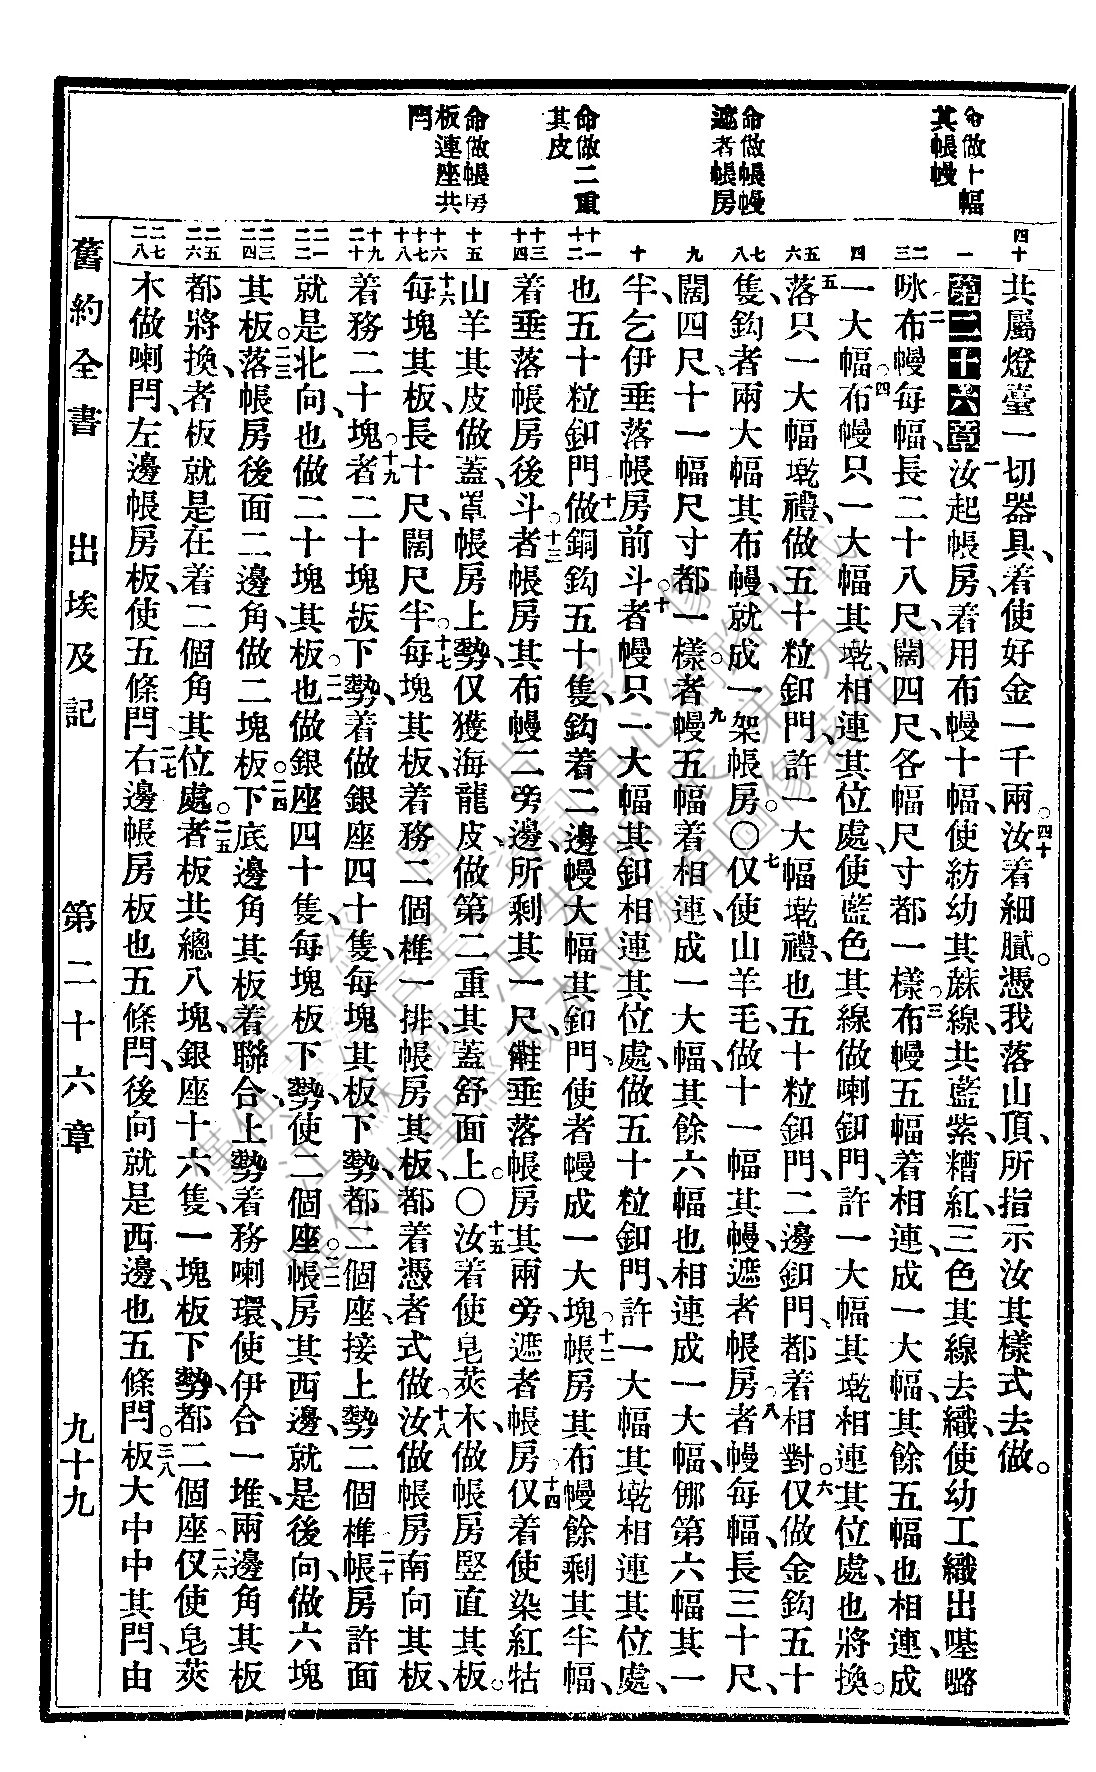 命做十幅
其帳幔
命做帳幔
遮者帳房
命做二重
其皮
命做帳房
板連座共
閂
四十 一 二三 四 五六 七八 九 十 十一十二 十三十四 十五 十六十七十八 十九二十 二一二二 二三二四 二五二六 二七二八
共屬燈臺一切器具、着使好金一千兩。四十汝着細膩。憑我落山頂、所指示汝其樣式去做。
第二十六章一汝起帳房、着用布幔十幅、使紡幼其蔴線、共藍紫糟紅、三色其線去織、使幼工織出𠼻𡀔
二咏布幔每幅、長二十八尺、闊四尺、各幅尺寸都一樣。三布幔五幅着相連、成一大幅、其餘五幅也相連、成
一大幅。四布幔只一大幅其墘、相連其位處、使藍色其線做喇釦門、許一大幅其墘相連其位處、也將換。
五落只一大幅墘禮、做五十粒釦門、許一大幅墘禮、也五十粒釦門、二邊釦門、都着相對。六仅做金鈎五十
隻、鈎者兩大幅其布幔、就成一架帳房。〇七仅使山羊毛、做十一幅其幔、遮者帳房。八者幔每幅、長三十尺、
闊四尺、十一幅尺寸、都一樣。九者幔五幅着相連、成一大幅、其餘六幅也相連成一大幅、㑚第六幅其一
半、乞伊垂落帳房前斗。十者幔只一大幅、其釦相連其位處、做五十粒釦門、許一大幅其墘相連其位處、
也五十粒釦門。十一做銅鈎五十隻、鈎着二邊幔大幅其釦門、使者幔成一大塊。十二帳房其布幔餘剩其半幅、
着垂落帳房後斗。十三者帳房其布幔、二旁邊、所剩其一尺、𣍐垂落帳房其兩旁、遮者帳房。十四仅着使染紅牯
山羊其皮做蓋、罩帳房上勢、仅獲海龍皮、做第二重其蓋、舒面上。〇十五汝着使皂莢木、做帳房豎直其板。
十六每塊其板、長十尺、闊尺半。十七每塊其板、着務二個榫一排、帳房其板、都着憑者式做。十八汝做帳房南向其板、
着務二十塊。十九者二十塊板下勢、着做銀座四十隻、每塊其板下勢、都二個座、接上勢二個榫。二十帳房許面
就是北向、也做二十塊其板。二一也做銀座四十隻、每塊板下勢、使二個座。二二帳房其西邊、就是後向、做六塊
其板。二三落帳房後面二邊角、做二塊板。二四下底邊角其板着聯合、上勢着務喇環、使伊合一堆、兩邊角其板
都將換、者板就是在着二個角其位處。二五者板共總八塊、銀座十六隻、一塊板下勢、都二個座。二六仅使皂莢
木做喇閂、左邊帳房板、使五條閂。二七右邊帳房板也五條閂、後向就是西邊、也五條閂。二八板大中中其閂、由
舊約全書 出埃及記 第二十六章 九十九